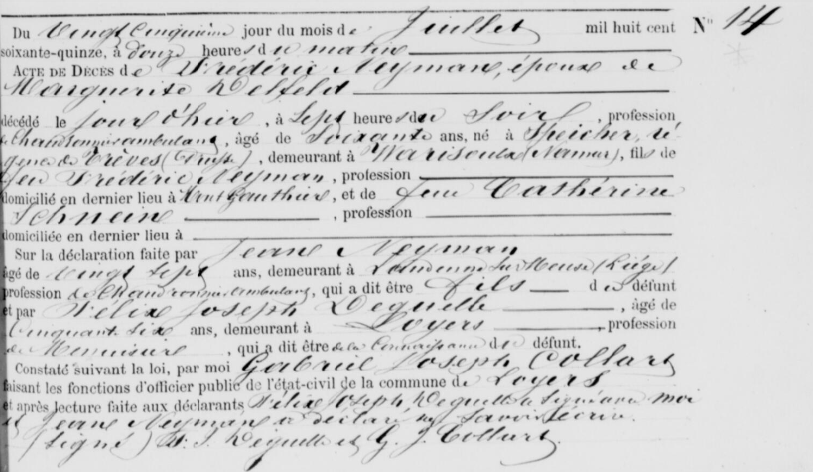 Du Vingt Cinquième jour du mois de Juillet mil huit cent N° 14
soixante-quinze, à douze heures du matin
ACTE DE DÉCÈS de Frédéric Neyman, époux de
Marguerite
décédé le jour d'hier, à Sept heures du Soir, profession
de Chaudronnier ambulant, âgé de Soixante ans, né à Speicher, ré-
gence de Trèves (Prusse), demeurant à Warisoulx (Namur), fils de
feu Frédéric Neyman, profession
domicilié en dernier lieu à, et de feue Cathérine
Schnein, profession
domiciliée en dernier lieu à
Sur la déclaration faite par Jean Neyman
âgé de vingt sept ans, demeurant à Landenne sur Meuse (Liège)
profession de Chaudronnier ambulant, qui a dit être fils du défunt
et par Félix Joseph Dequelle, âgé de
Cinquante six ans, demeurant à Loyers, profession
de Menuisier, qui a dit être de la Connaissance du défunt.
Constaté suivant la loi, par moi Gabriel Joseph Collart
faisant les fonctions d'officier public de l'état-civil de la commune de Loyers
et après lecture faite aux déclarants Félix Joseph Dequelle a signé avec moi
et Jean Neyman a déclaré ne savoir écrire.
(signé) F. J. Dequelle et G. J. Collart.